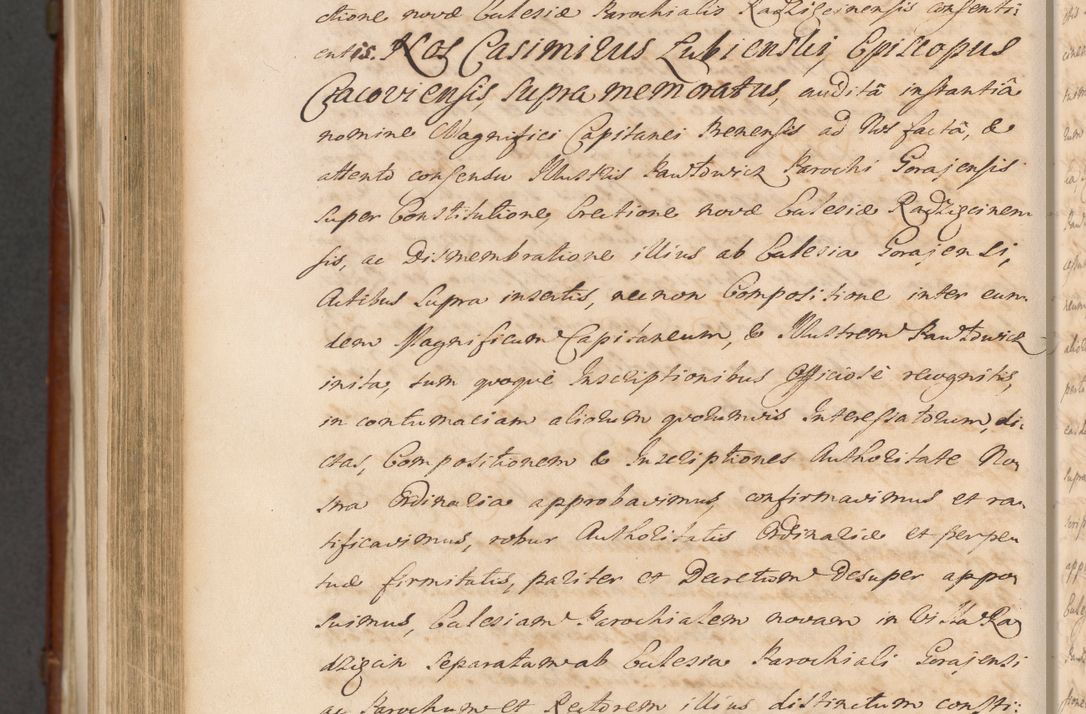 ctione novæ Ecclesiæ Parochialis Radzięcinensis consenti
entis. Nos Casimirus Łubienski, Episcopus
Cracoviensis, supra memoratus, auditâ instantiâ
nomine Magnifici Capitanei Brenensis ad Nos factâ, &
attento consensu Illustris Pawłowicz Parochi Gorajensis
super Constitutione, Erectione novæ Eclesiæ Radzięcinen
sis, ac Dismembratione illius ab Eclesia Gorajensi,
Actibus supra insertis, necnon Compositione inter eun
dem Magnificum Capitaneum, & Illustrem Pawłowicz
inita, tum quoquè Inscriptionibus Officiosè recognitis,
in contumaciam aliorum quorumvis Interessatorum, di
ctas, Compositionem & Inscriptiones Authoritate No
stra Ordinaria approbavimus, confirmavimus et ra
tificavimus, robur Authoritatis Ordinariæ et perpe
tuæ firmitatis, pariter et Decretum desuper appo
suimus, Eclesiam Parochialem novam in Villa Ra
dzięcin separatam ab Eclesia Parochiali Gorajensi
ac Parochum et Rectorem illius distinctum consti: